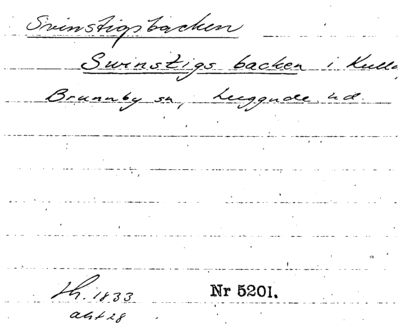 Svinstigsbacken
Swinstigs backen i Kulla
Brunnby sn, Luggude hd.
Th. 1833
akt 28
Nr 5201.